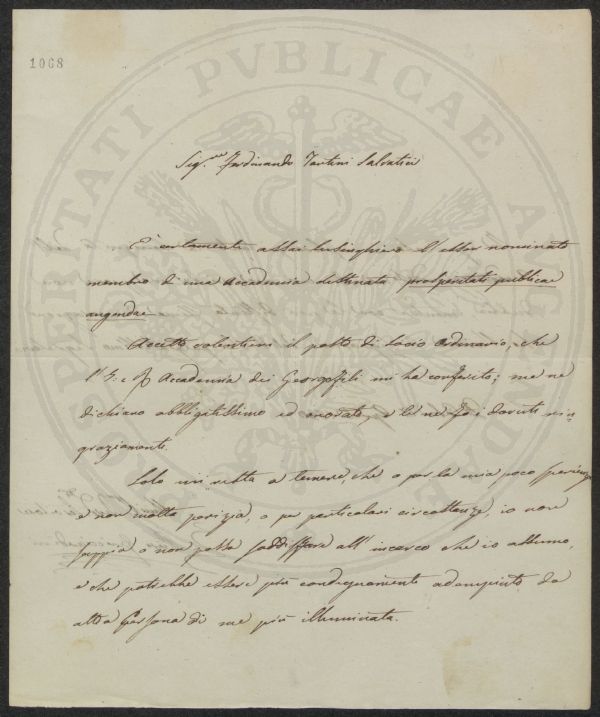 1068
PROSPERITATI PVBLICAE AVGENDAE
Sig.re Ferdinando Tartini Salvatici
È certamente assai lusinghiero l'esser nominato
membro di una Accademia destinata prosperitati publicae
augendae.
Accetto volentieri il posto di Socio Ordinario, che
l'I. e R. Accademia dei Georgofili mi ha conferito; me ne
dichiaro obbligatissimo ed onorato, e le ne fo i dovuti rin=
graziamenti.
Solo mi resta a temere, che o per la mia poca sperienza
e non molta perizia, o per particolari circostanze, io non
sappia o non possa soddisfare all'incarco che io assumo,
e che potrebbe essere più condegnamente adempiuto da
altra Persona di me più illuminata.